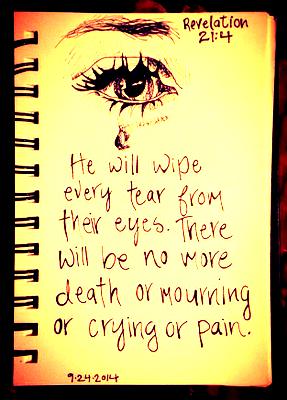 Revelation
21:4
He will wipe
every tear from
their eyes. There
will be no more
death or mourning
or crying or pain.
9.24.2014